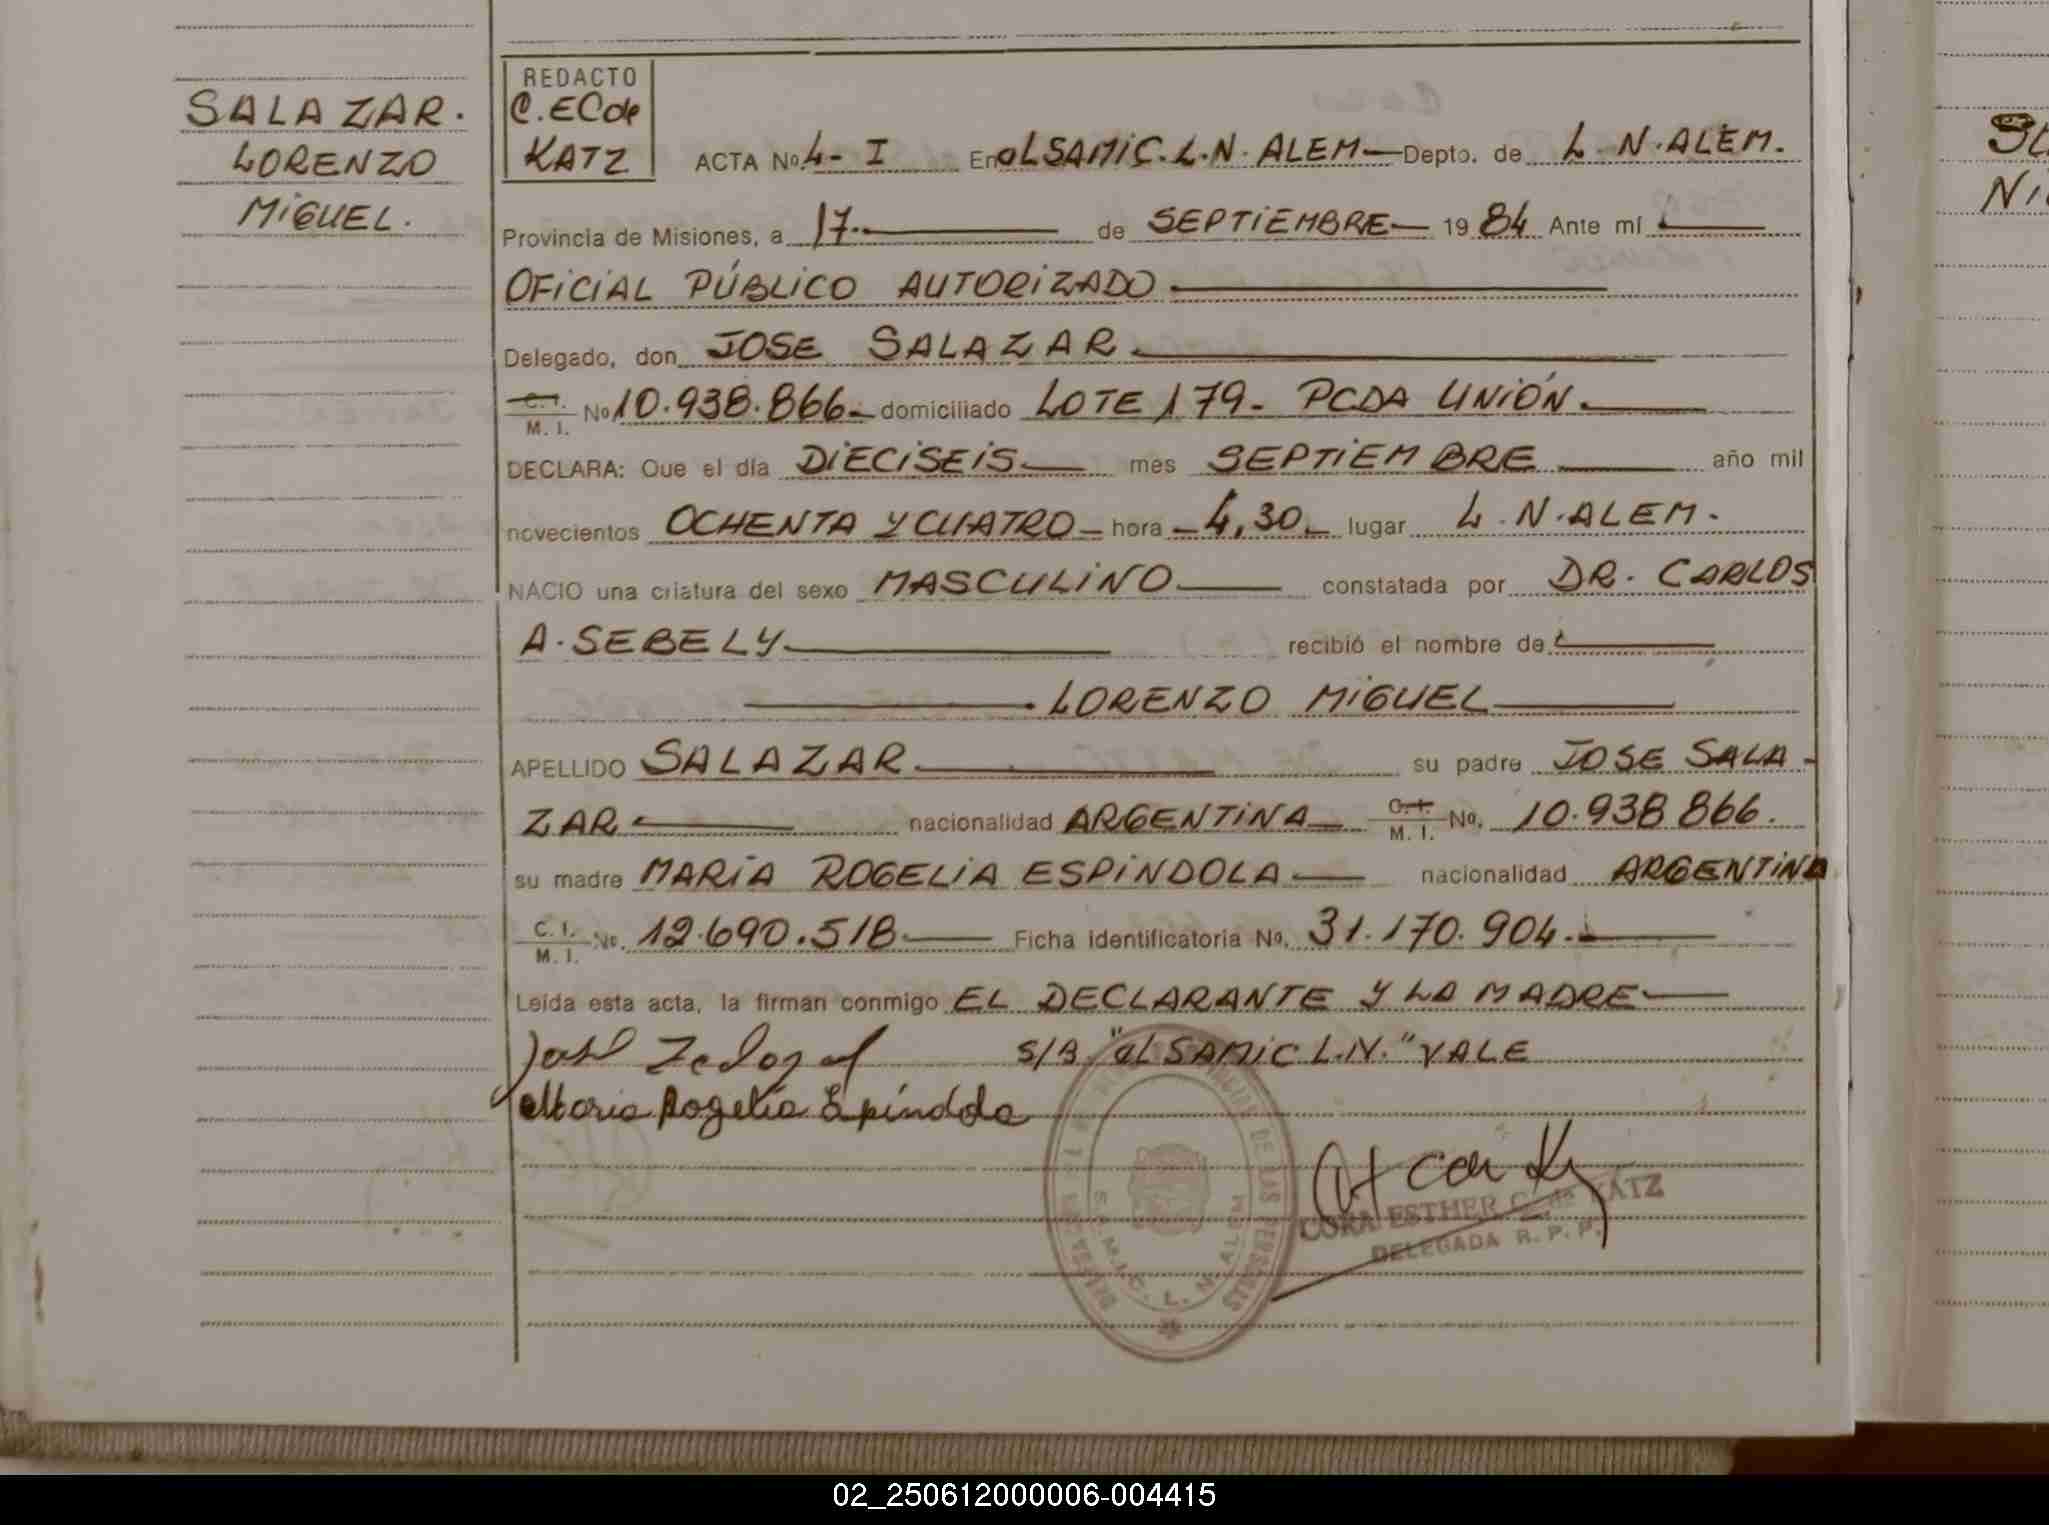 SALAZAR.
LORENZO
MIGUEL.
REDACTO
C. EC de
KATZ
ACTA No. 4- I En el SAMIC. L. N. ALEM — Depto. de L. N. ALEM.
Provincia de Misiones, a 17. — de SEPTIEMBRE — 1984 Ante mí —
OFICIAL PÚBLICO AUTORIZADO —
Delegado, don JOSE SALAZAR —
C. I. M. I. No 10.938.866 - domiciliado LOTE 179 - PCDA UNIÓN. —
DECLARA: Que el día DIECISEIS — mes SEPTIEMBRE — año mil
novecientos OCHENTA Y CUATRO - hora - 4,30 - lugar L. N. ALEM.
NACIO una criatura del sexo MASCULINO — constatada por DR. CARLOS
A. SEBELY — recibió el nombre de —
— LORENZO MIGUEL —
APELLIDO SALAZAR — su padre JOSE SALA-
ZAR — nacionalidad ARGENTINA — C. I. M. I. No. 10.938.866.
su madre MARIA ROGELIA ESPINDOLA — nacionalidad ARGENTINA
C. I. M. I. No. 12.690.518 — Ficha identificatoria No. 31.170.904. —
Leída esta acta, la firman conmigo EL DECLARANTE Y LA MADRE —
S/B "el SAMIC L.N." VALE
Maria Rogelia Espíndola
DE LAS PERSONAS
S.A.M.I.C. L. N. ALEM
CORA ESTHER C. de KATZ
DELEGADA R. P. P.
02_250612000006-004415